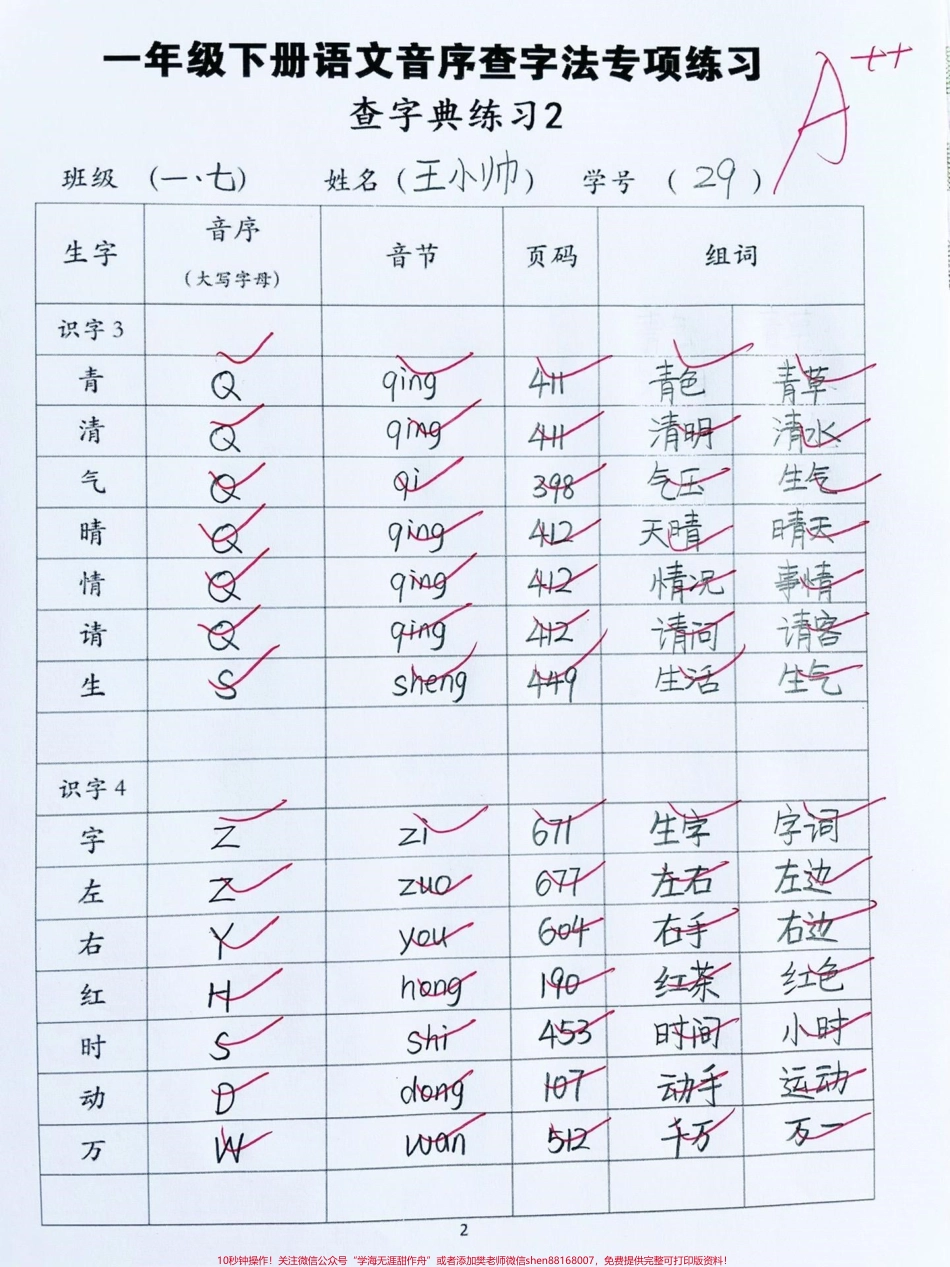 一年级下册语文音序查字法专项练习
A++
查字典练习2
班级 (一、七) 姓名 (王小帅) 学号 (29)
生字 音序 (大写字母) 音节 页码 组词
识字3
青 Q qing 411 青色 青草
清 Q qing 411 清明 清水
气 Q qi 398 气压 生气
晴 Q qing 412 天晴 晴天
情 Q qing 412 情况 事情
请 Q qing 412 请问 请客
生 S sheng 449 生活 生气
识字4
字 Z zi 671 生字 字词
左 Z zuo 677 左右 左边
右 Y you 604 右手 右边
红 H hong 190 红茶 红色
时 S shi 453 时间 小时
动 D dong 107 动手 运动
万 W wan 512 千万 万一
2
10秒钟操作！关注微信公众号“学海无涯甜作舟”或者添加樊老师微信shen88168007，免费提供完整可打印版资料！